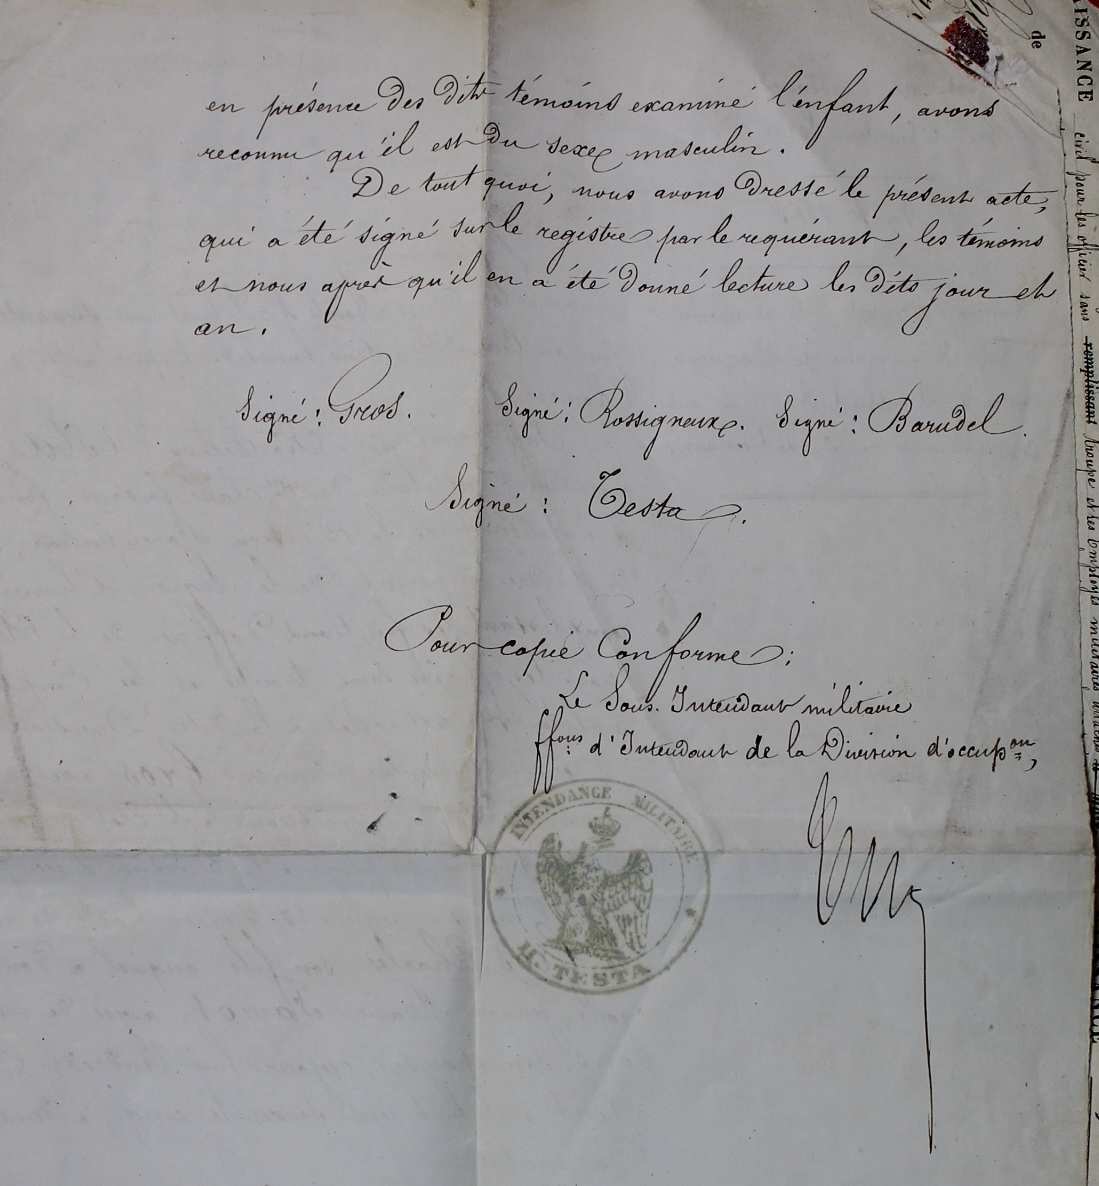 en présence des dits témoins examiné l'enfant, avons
reconnu qu'il est du sexe masculin.
De tout quoi, nous avons dressé le présent acte,
qui a été signé sur le registre par le requérant, les témoins
et nous après qu'il en a été donné lecture les dits jour et
an.
Signé: Gros. Signé: Rossigneux. Signé: Barudel.
Signé: Testa.
Pour copie Conforme:
Le Sous-Intendant militaire
ffons d'Intendant de la Division d'occupon,
INTENDANCE MILITAIRE
H. TESTA
de
AISSANCE
civil pour les officier sans remplissant troupe et les Employés militaires